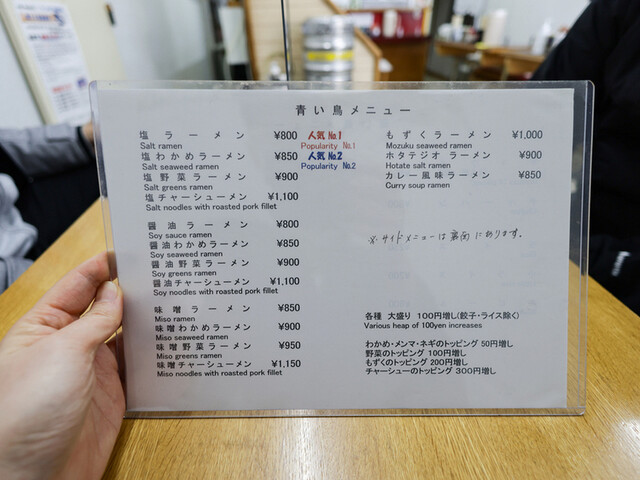 青い鳥メニュー
塩 ラ ー メ ン ¥800 人気 No.1
Salt ramen Popularity No.1
塩わかめラーメン ¥850 人気 No.2
Salt seaweed ramen Popularity No.2
塩野菜ラーメン ¥900
Salt greens ramen
塩チャーシューメン ¥1,100
Salt noodles with roasted pork fillet
醤 油 ラ ー メ ン ¥800
Soy sauce ramen
醤油わかめラーメン ¥850
Soy seaweed ramen
醤油野菜ラーメン ¥900
Soy greens ramen
醤油チャーシューメン ¥1,100
Soy noodles with roasted pork fillet
味 噌 ラ ー メ ン ¥850
Miso ramen
味噌わかめラーメン ¥900
Miso seaweed ramen
味噌野菜ラーメン ¥950
Miso greens ramen
味噌チャーシューメン ¥1,150
Miso noodles with roasted pork fillet
もずくラーメン ¥1,000
Mozuku seaweed ramen
ホタテジオ ラーメン ¥900
Hotate salt ramen
カレー風味ラーメン ¥850
Curry soup ramen
※サイドメニューは裏面にあります。
各種 大盛り 100円増し(餃子・ライス除く)
Various heap of 100yen increases
わかめ・メンマ・ネギのトッピング 50円増し
野菜のトッピング 100円増し
もずくのトッピング 200円増し
チャーシューのトッピング 300円増し